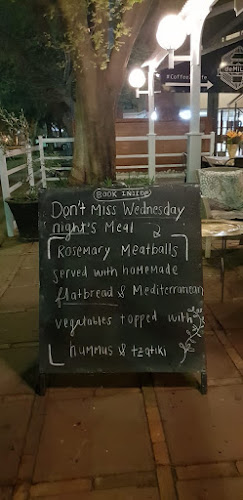 deMIL
#Coffee
fe
BOOK INSIDE
Don't Miss Wednesday
night's Meal
Rosemary Meatballs
served with homemade
flatbread & Mediterranean
vegetables topped with
hummus & tzatiki